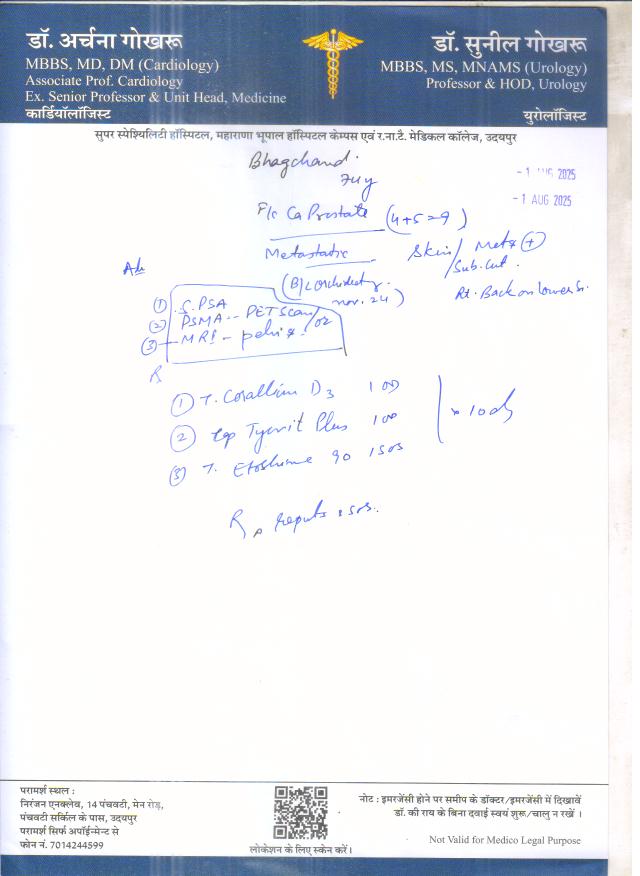 डॉ. अर्चना गोखरू
MBBS, MD, DM (Cardiology)
Associate Prof. Cardiology
Ex. Senior Professor & Unit Head, Medicine
कार्डियॉलॉजिस्ट
डॉ. सुनील गोखरू
MBBS, MS, MNAMS (Urology)
Professor & HOD, Urology
युरोलॉजिस्ट
सुपर स्पेश्यिलिटी हॉस्पिटल, महाराणा भूपाल हॉस्पिटल केम्पस एवं र.ना.टै. मेडिकल कॉलेज, उदयपुर
Bhagchand
- 1 AUG 2025
- 1 AUG 2025
F/c Ca Prostate (4+5=9)
Metastatic Skin/ Mets +
Sub.cut.
(B/L orchidectomy nov. 24) Rt. Back on lower
Adv
① S. PSA
② PSMA -- PET Scan/or
③ MRI - pelvis
R
① T. Corallium D3 1 OD
② Cap Plus 1 OD
③ T. Etoshine 90 1 SOS
x 10 d
R reports & sos.
परामर्श स्थल :
निरंजन एनक्लेव, 14 पंचवटी, मेन रोड़,
पंचवटी सर्किल के पास, उदयपुर
परामर्श सिर्फ अपॉईन्मेन्ट से
फोन नं. 7014244599
लोकेशन के लिए स्केन करें।
नोट : इमरजेंसी होने पर समीप के डॉक्टर/इमरजेंसी में दिखावें
डॉ. की राय के बिना दवाई स्वयं शुरू/चालु न रखें ।
Not Valid for Medico Legal Purpose